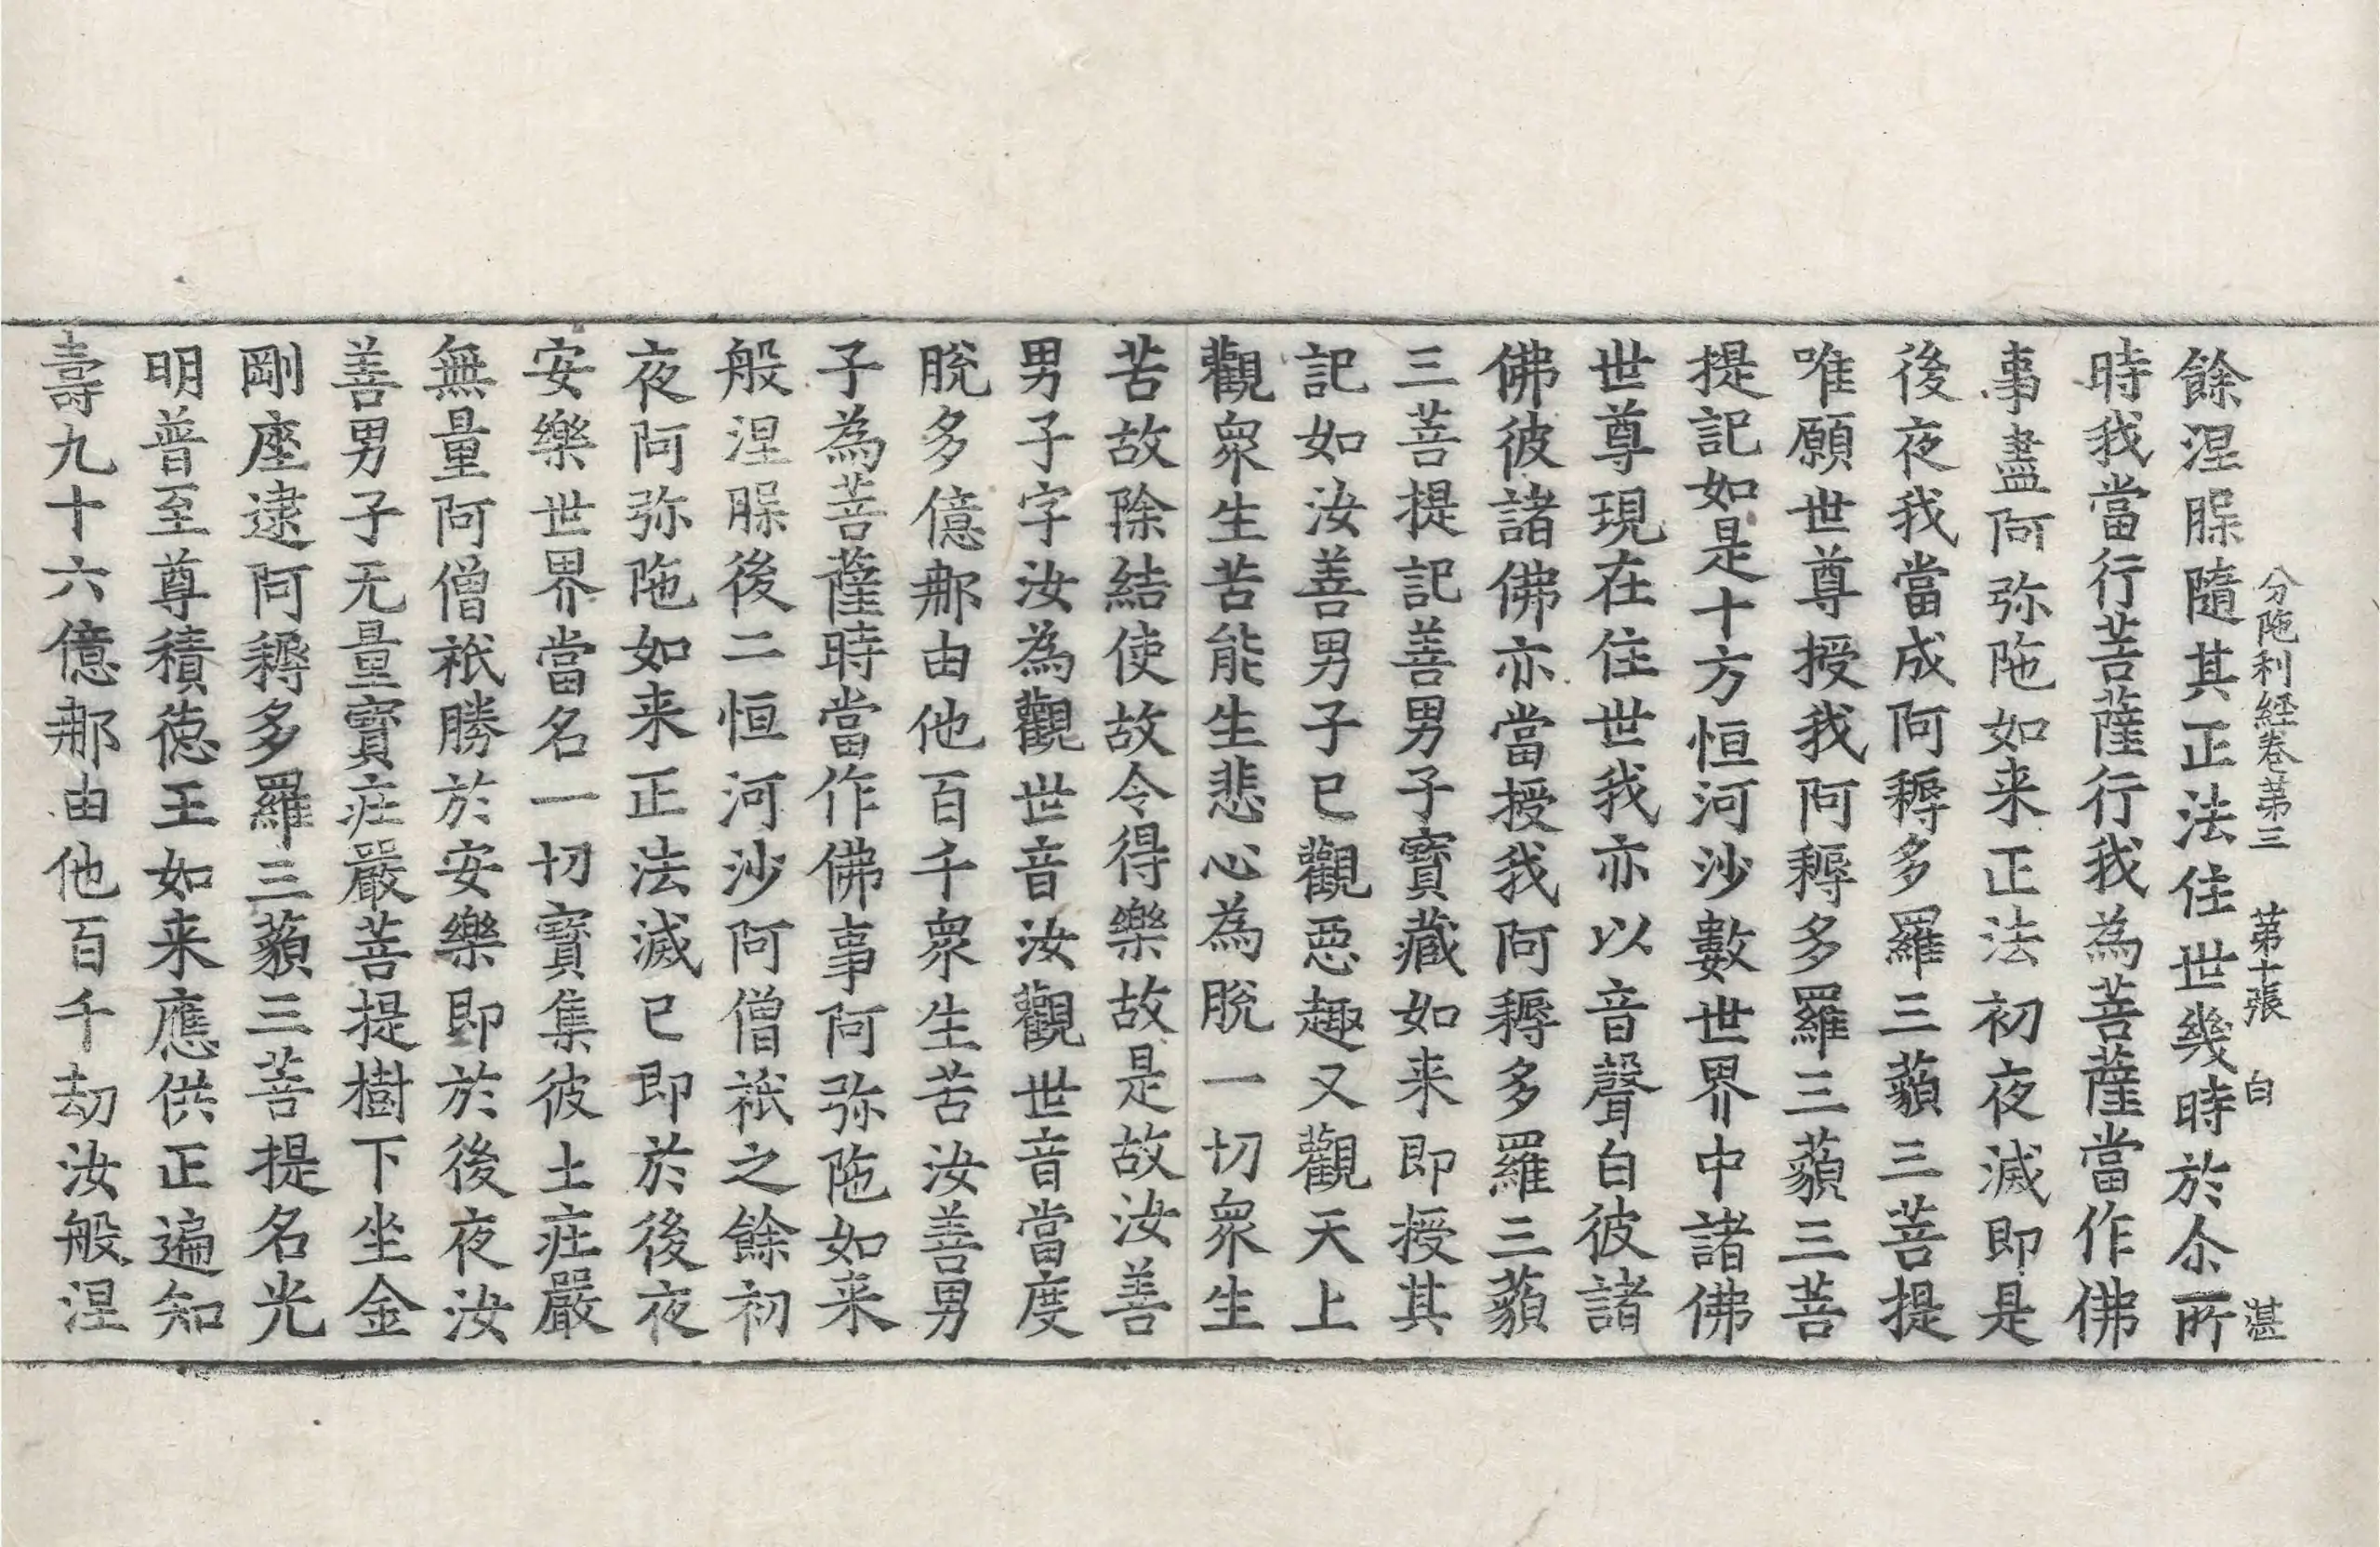 分陁利経卷苐三　苐十張　白　湛
餘涅槃隨其正法住世幾時於尒所
時我當行菩薩行我為菩薩當作佛
事盡阿弥陁如来正法初夜滅即是
後夜我當成阿耨多羅三藐三菩提
唯願世尊授我阿耨多羅三藐三菩
提記如是十方恒河沙數世界中諸佛
世尊現在住世我亦以音聲白彼諸
佛彼諸佛亦當授我阿耨多羅三藐
三菩提記善男子寶藏如来即授其
記如汝善男子已觀惡趣又觀天上
觀衆生苦能生悲心為脫一切衆生
苦故除結使故令得樂故是故汝善
男子字汝為觀世音汝觀世音當度
脫多億那由他百千衆生苦汝善男
子為菩薩時當作佛事阿弥陁如来
般涅槃後二恒河沙阿僧祇之餘初
夜阿弥陁如来正法滅已即於後夜
安樂世界當名一切寶集彼土庄嚴
無量阿僧祇勝於安樂即於後夜汝
善男子无量寶庄嚴菩提樹下坐金
剛座逮阿耨多羅三藐三菩提名光
明普至尊積徳王如来應供正遍知
壽九十六億那由他百千劫汝般涅